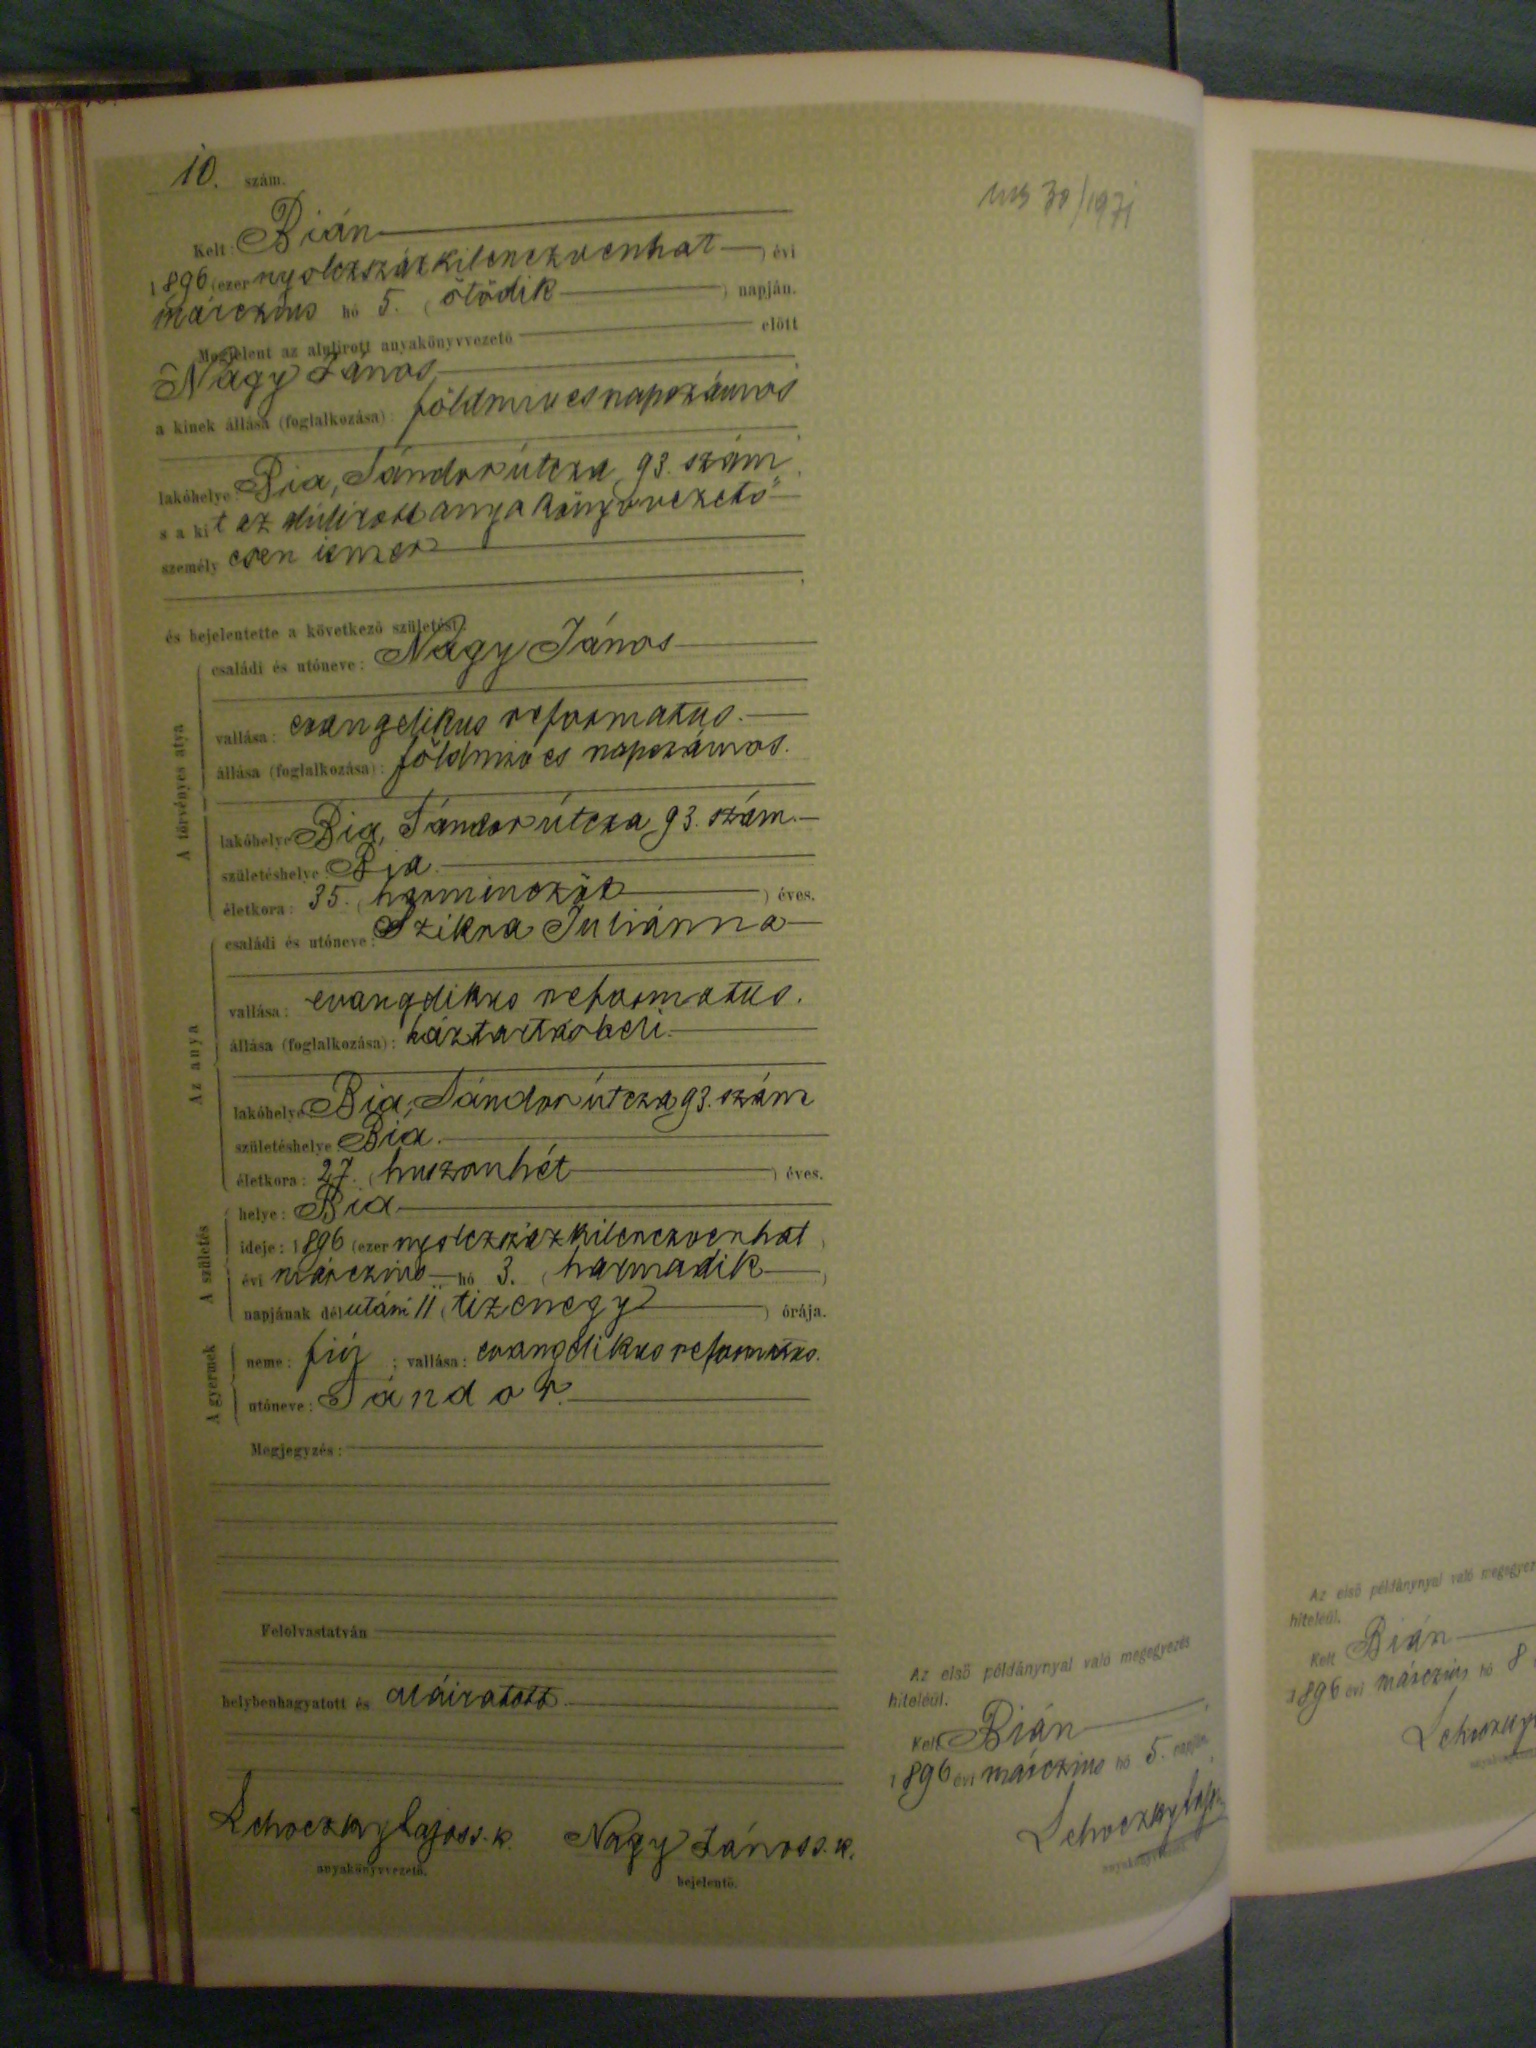 10. szám.
Kelt: Bián
1896 (ezer nyolczszázkilenczvenhat) évi
márczius hó 5. (ötödik) napján.
Megjelent az alulirott anyakönyvvezető előtt
Nagy János
a kinek állása (foglalkozása): földmives napszámos
lakóhelye: Bia, Sándor útcza 93. szám
s a kit az alulirott anyakönyvvezető
személyesen ismer
és bejelentette a következő születést:
A törvényes atya
családi és utóneve: Nagy János
vallása: evangelikus reformatus.
állása (foglalkozása): földmives napszámos.
lakóhelye: Bia, Sándor útcza 93. szám.
születéshelye: Bia.
életkora: 35. (harminczöt) éves.
Az anya
családi és utóneve: Szikra Juliánna
vallása: evangelikus reformatus.
állása (foglalkozása): háztartásbeli.
lakóhelye: Bia, Sándor útcza 93. szám
születéshelye: Bia.
életkora: 27. (huszonhét) éves.
A születés
helye: Bia
ideje: 1896 (ezer nyolczszázkilenczvenhat)
évi márczius hó 3. (harmadik)
napjának délutáni 11 (tizenegy) órája.
A gyermek
neme: fiú; vallása: evangelikus reformatus.
utóneve: Sándor.
Megjegyzés:
Felolvastatván
helybenhagyatott és aláiratott.
Lehoczky Lajos s. k.
anyakönyvvezető.
Nagy János s. k.
bejelentő.
30/1971
Az első példánynyal való megegyezés
hiteléül.
Kelt Bián
1896 évi márczius hó 5. napján.
Lehoczky Lajos
anyakönyvvezető.
Az első példánynyal való
hiteléül.
Kelt Bián
1896 évi márczius hó 8